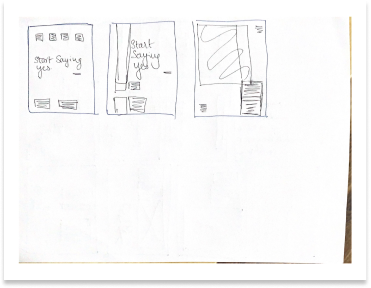 Start Saying
yes
Start
Saying
yes